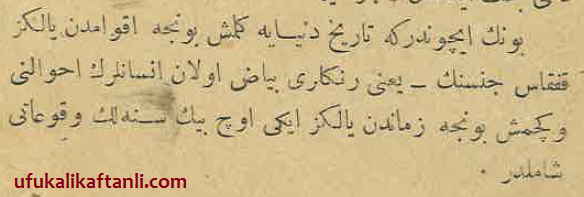 بونك ايچوندركه تاريخ دنيايه كلمش بونجه اقوامدن يالكز
قفقاس جنسنك ــ يعنى رنكلرى بياض اولان انسانلرك احوالنى
و كچمش بونجه زماندن يالكز ايكى اوچ بيك سنه‌لك وقوعاتى
شاملدر .
ufukalikaftanli.com